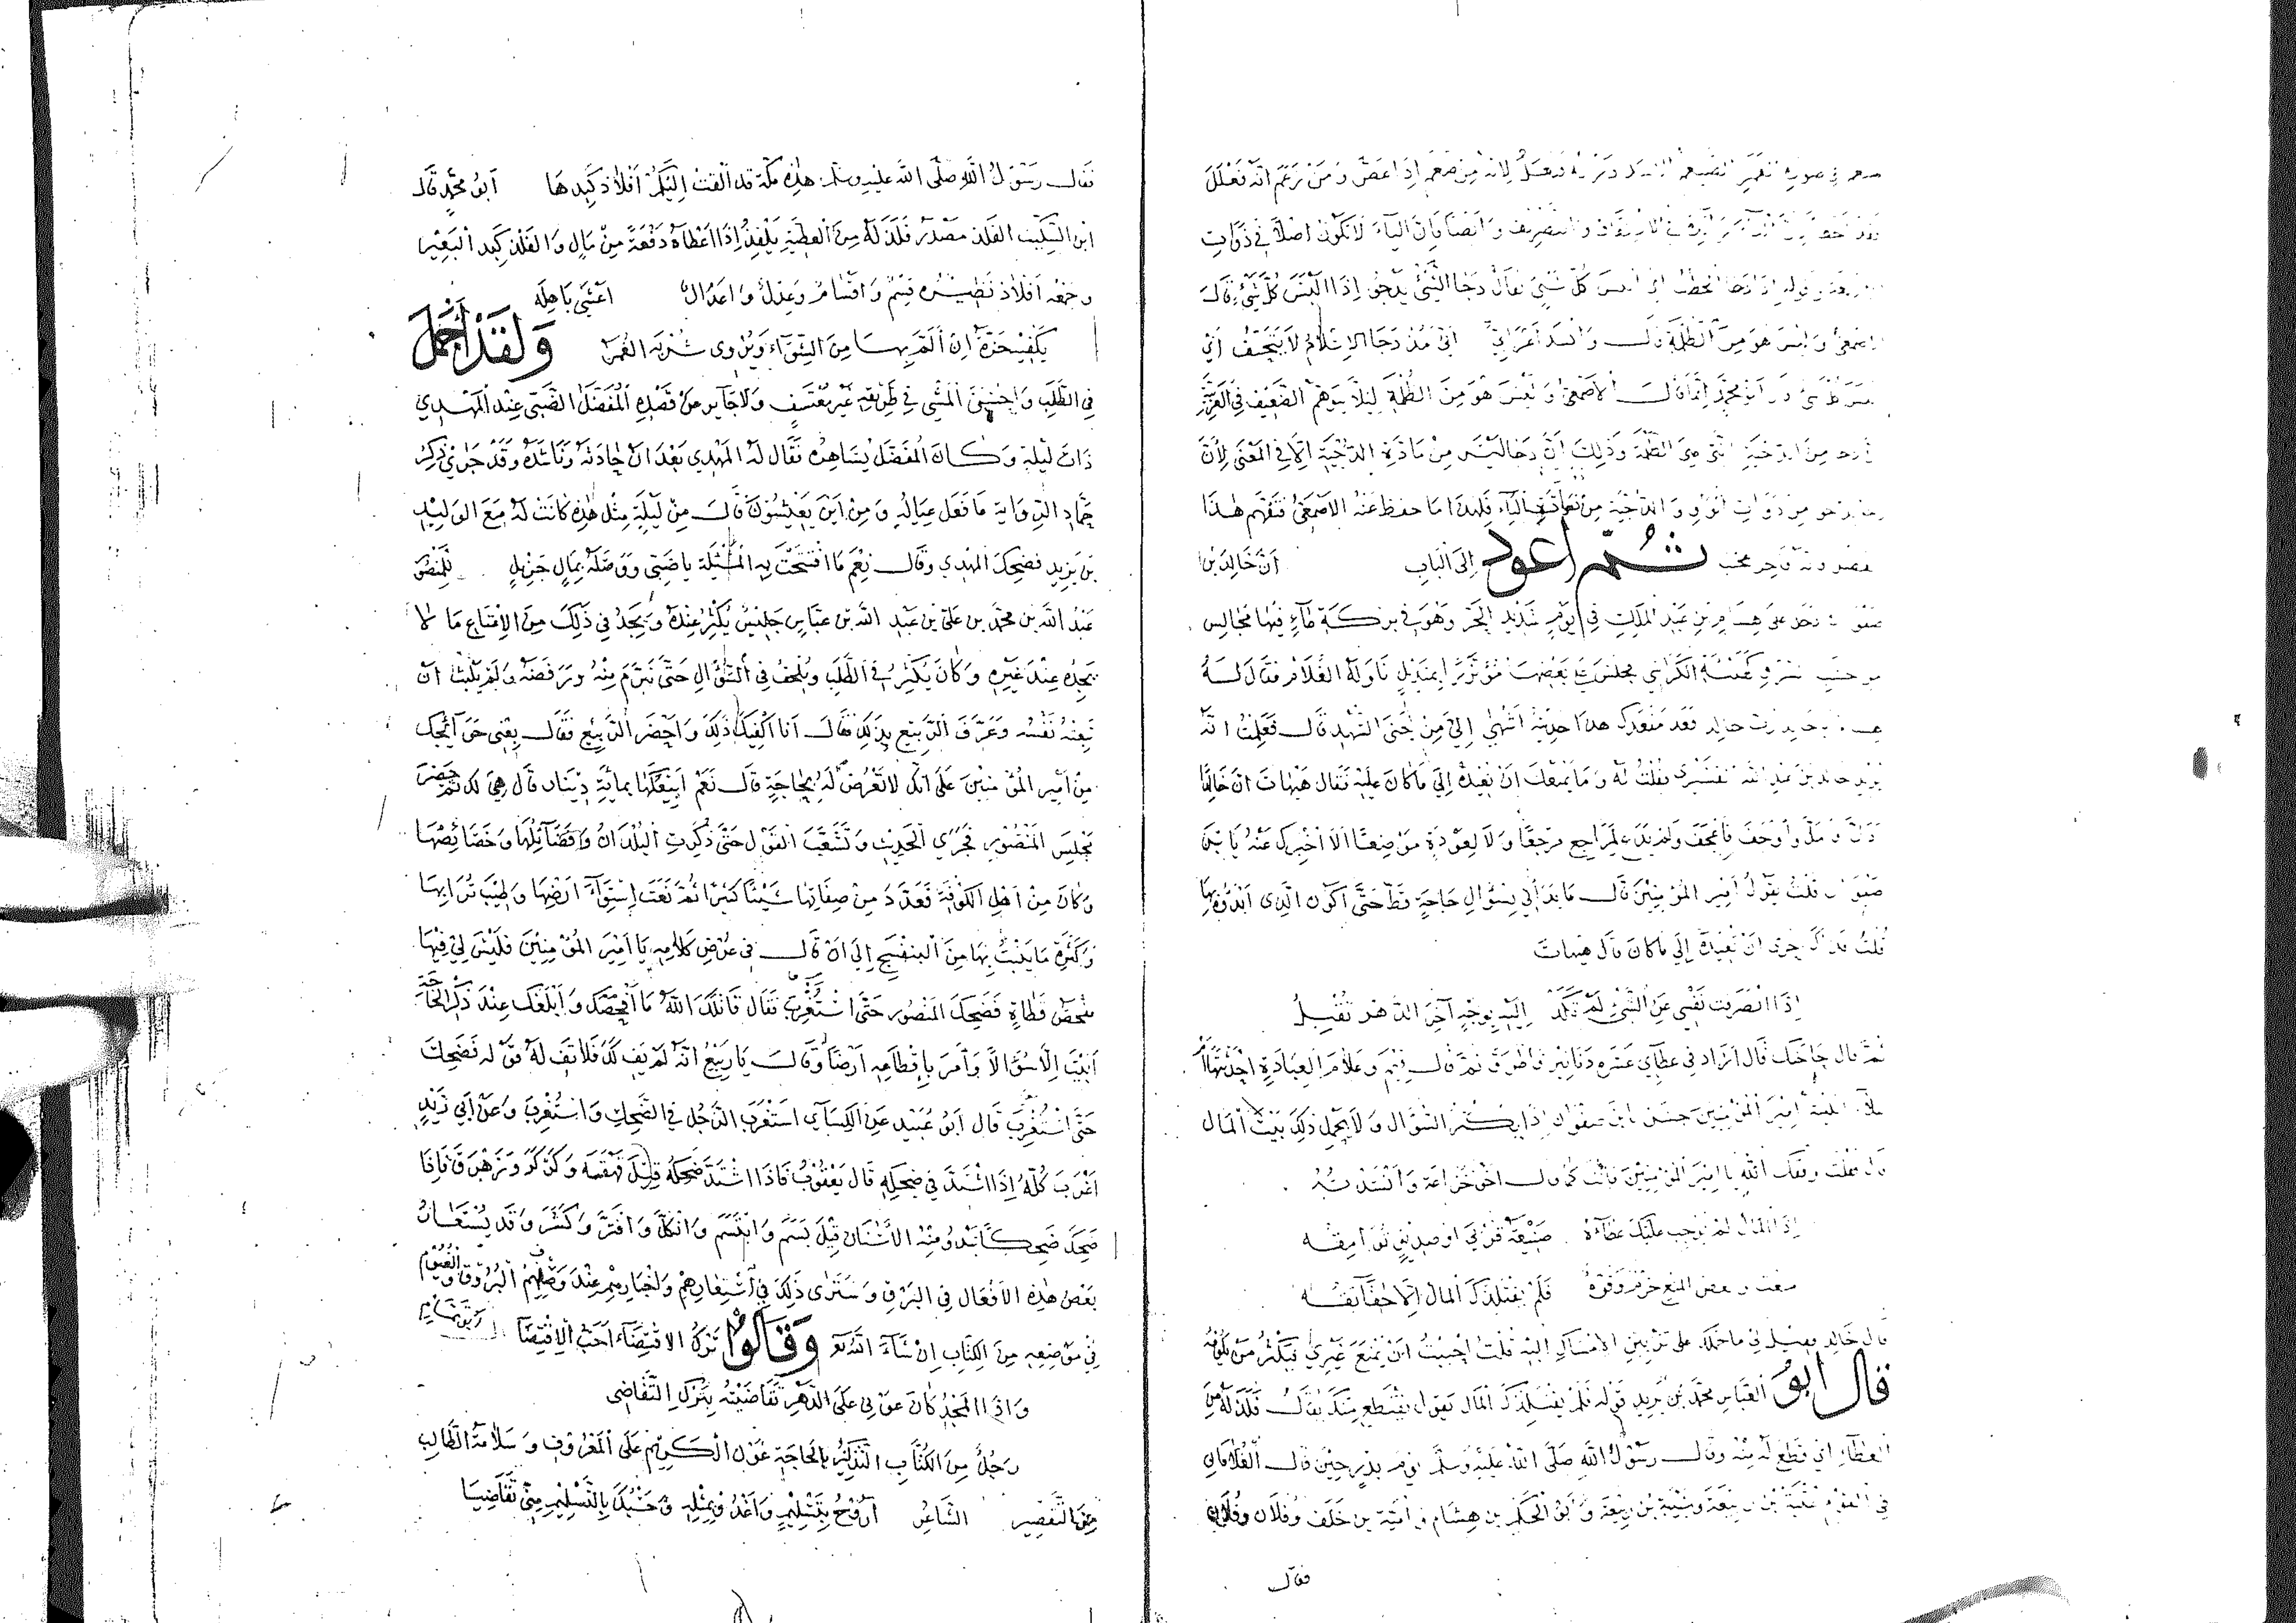 لانه من ضغم اذا عض ومن زعم انه فعلل
والتصريف وايضا فان الياء لا تكون اصلا في ذوات
كل شيء يقال دجا الشيء يدجو اذا البس كل شيء قال
الاصمعي وليس هو من الظلمة قال وانشد اعرابي ابي مذ دجا الاسلام لا يتحنف اي
ابو محمد انما قال الاصمعي وليس هو من الظلمة ليلا يتوهم الضعيف في العربية
هي الظلمة وذلك ان دجا ليس من مادة الدجية الا في المعنى لان
من ذوات الواو والدجية من ذوات الياء فلهذا ما حفظ عنه الاصمعي فتفهم هذا
ثم اعود الى الباب ان خالد بن
صفوان دخل على هشام بن عبد الملك في يوم شديد الحر وهو في بركة ماء فيها مجالس
الكراسي مجلس على بعضها مؤتزرا بمنديل ناوله الغلام فقال له
خالد فقد مقعدك هذا حديثه اشهى الي من جنى الشهد قال فعلمت انه
يريد خالد بن عبد الله القسري فقلت له وما يمنعك ان تعيده الى ما كان عليه فقال هيهات ان خالدا
فاعجف ولم يدع لمراجع مرجعا ولا لعودة موضعا الا اخبرك عنه يا بن
صفوان قلت يقول امير المؤمنين قال ما بدأني بسؤال حاجة قط حتى اكون الذي ابدؤه بها
قلت ان تعيده الى ما كان قال هيهات
اذا انصرفت نفسي عن الشيء لم تكد اليه بوجه آخر الدهر تقبل
ثم قال حاجتك قال ازاد في عطاي عشرة دنانير فاطرق ثم قال فيم وعلام العبادة احدثتها ام
امير المؤمنين حسن ابن صفوان اذا يكثر السؤال ولا يحمل ذلك بيت المال
قال فقلت وفقك الله يا امير المؤمنين فانت كما قال اخو خزاعة وانشدته
اذا المال لم يوجب عليك عطاءه صنيعة قربى او صديق توامقه
منعت وبعض المنع حزم وقوة فلم يفتلذك المال الا حقائقه
قال خالد فقيل لي ما حملك على تزيين الامساك اليه قلت احببت ان يمنع غيري فيكثر من يلومه
قال ابو العباس محمد بن يزيد قوله فلم يفتلذك المال يقول يقتطع منك يقال فلذ له من
العطاء اي قطع له منه وقال رسول الله صلى الله عليه وسلم يوم بدر حين قال الغلامان
في القوم عتبة بن ربيعة وشيبة بن ربيعة وابو الحكم بن هشام وامية بن خلف وفلان وفلان
فقال
فقال رسول الله صلى الله عليه وسلم هذه مكة قد القت اليكم افلاذ كبدها ابو محمد قال
ابن السكيت الفلذ مصدر فلذ له من العطية يفلذ اذا اعطاه دفعة من مال والفلذ كبد البعير
وجمعه افلاذ نظيره قسم واقسام وعدل واعدال اعشى باهله
يكفيه حزة ان الم بها من الشواء ويروى شربه الغمر ولقد اجمل
في الطلب واحسن المشي في طريقه غير معتسف ولا جاير عن قصده المفضل الضبي عند المهدي
ذات ليلة وكان المفضل يسامره فقال له المهدي بعد ان حادثه وناشده وقد جرى ذكر
حماد الراوية ما فعل عياله ومن اين يعيشون قال من ليلة مثل هذه كانت له مع الوليد
بن يزيد فضحك المهدي وقال نعم ما افتتحت به المسئلة يا ضبي ووصله بمال جزيل للمنصور
عبد الله بن محمد بن علي بن عبد الله بن عباس جليس يكثر عنده ويجد في ذلك من الامتاع ما لا
يجده عند غيره وكان يكثر في الطلب ويلحف في السؤال حتى تبرم منه ورفضه ولم يلبث ان
تبعته نفسه وعرف الربيع بذلك فقال انا اكفيك ذلك واحضر الربيع فقال بعني حوائجك
من امير المؤمنين على انك لا تعرض له بحاجة قال نعم ابيعكها بمائة دينار قال هي لك ثم حضر
مجلس المنصور فجرى الحديث وتشعب القول حتى ذكرت البلدان وفضائلها وخصائصها
وكان من اهل الكوفة فعدد من صفاتها شيئا كثيرا ثم نعت استواء ارضها وطيب ترابها
وكثرة ما ينبت بها من البنفسج الى ان قال في عرض كلامه يا امير المؤمنين فليس لي فيها
مفحص قطاة فضحك المنصور حتى استغرب فقال قاتلك الله ما افصحك وابلغك عند ذكر الحاجة
ابيت الا سؤالا وامر باقطاعه ارضا وقال يا ربيع انه لم يف لك فلا تف له قوله فضحك
حتى استغرب قال ابو عبيد عن الكسآي استغرب الرجل في الضحك واستغرب وعن ابي زيد
اغرب كله اذا اشتد في ضحكه قال يعقوب فاذا اشتد ضحكه قيل قهقه وكركر وزهزق فاذا
ضحك ضحكا تبدو منه الاسنان قيل بسم وابتسم وانكل وافتر وكشر وقد يستعار
بعض هذه الافعال في البرق وسترى ذلك في اشعارهم واخبارهم عند وصفهم البروق والغيوم
في موضعه من الكتاب ان شاء الله تع وقالوا ترك الاقتضاء احث الاقتضا ابو تمام
واذا المجد كان عوني على الدهر تقاضيته بترك التقاضي
رجل من الكتاب التذكير بالحاجة عون الكريم على المعروف وسلامة الطالب
من التقصير الشاعر اروح بتسليم واغدو بمثله وحسبك بالتسليم مني تقاضيا